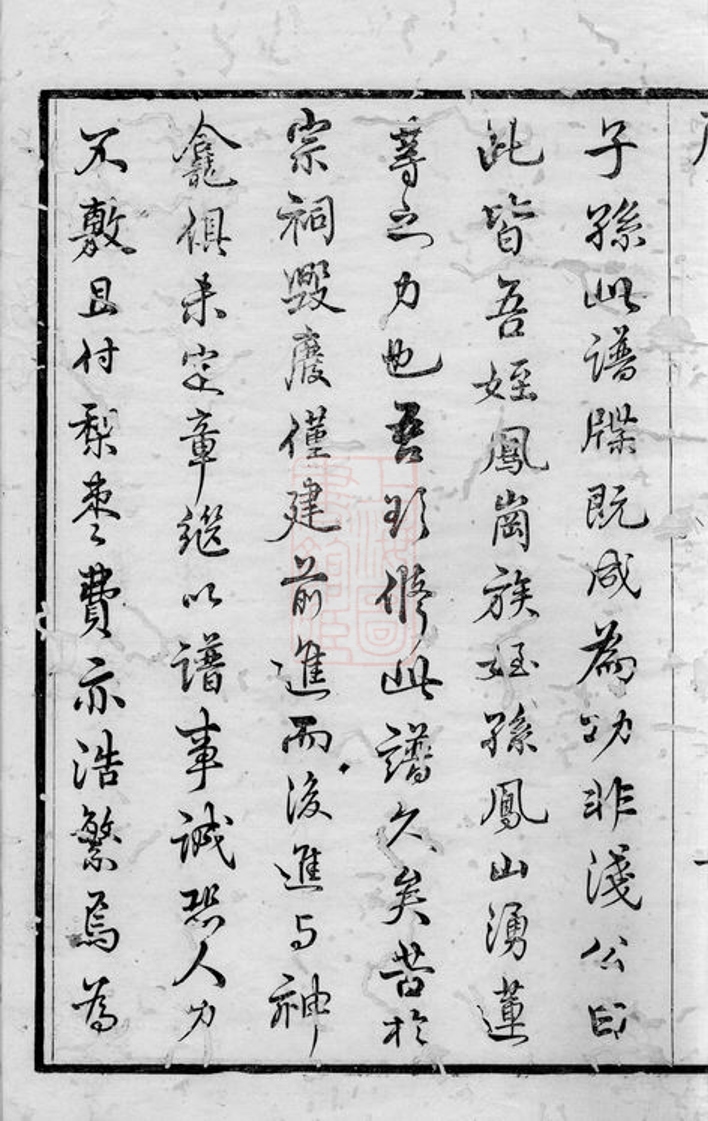 子孫此譜牒既成為功非淺公曰
此皆吾姪鳳崗族姪孫鳳山湧蓮
等之力也吾欲修此譜久矣苦於
宗祠毀廢僅建前進而後進與神
龕俱未定章繼以譜事誠恐人力
不敷且付梨棗費亦浩繁焉為